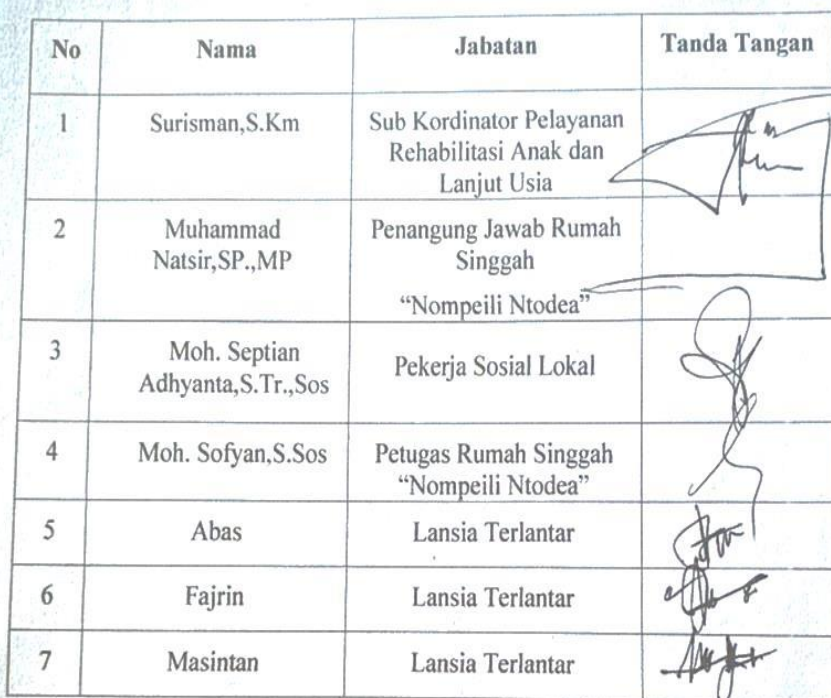 No Nama Jabatan Tanda Tangan
1 Surisman,S.Km Sub Kordinator Pelayanan
Rehabilitasi Anak dan
Lanjut Usia
2 Muhammad Penangung Jawab Rumah
Natsir,SP.,MP Singgah
“Nompeili Ntodea”
3 Moh. Septian
Adhyanta,S.Tr.,Sos Pekerja Sosial Lokal
4 Moh. Sofyan,S.Sos Petugas Rumah Singgah
“Nompeili Ntodea”
5 Abas Lansia Terlantar
6 Fajrin Lansia Terlantar
7 Masintan Lansia Terlantar